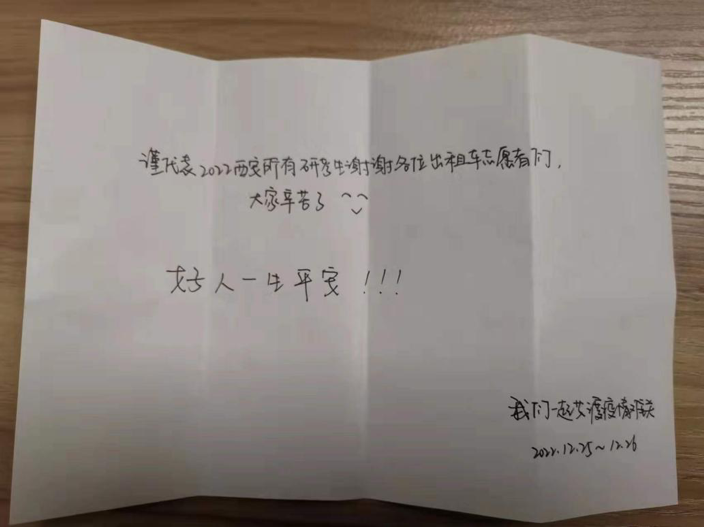 谨代表2022西安所有研考生谢谢各位出租车志愿者们,
大家辛苦了
好人一生平安!!!
我们一起共渡疫情难关
2022.12.25~12.26